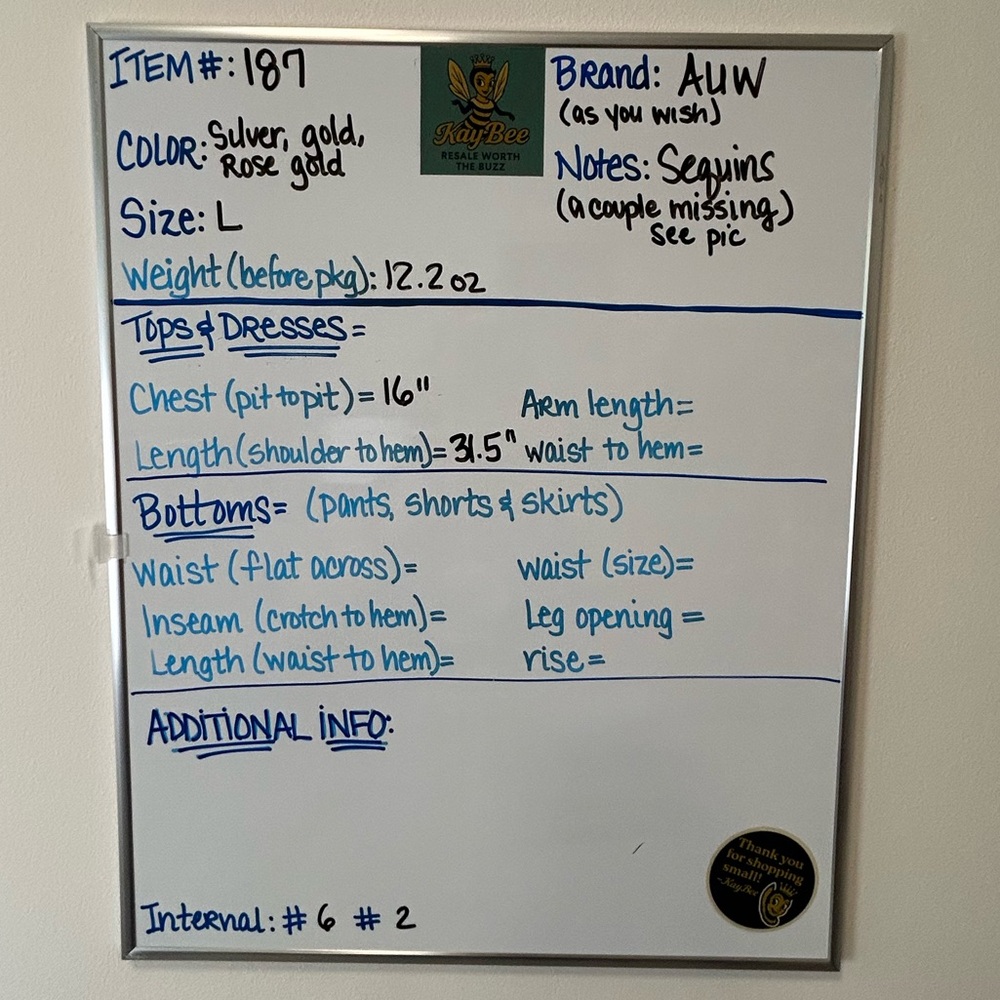 ITEM#: 187
COLOR: Silver, gold,
Rose gold
Size: L
Weight (before pkg): 12.2 oz
KayBee
RESALE WORTH
THE BUZZ
Brand: AUW
(as you wish)
Notes: Sequins
(a couple missing)
see pic
Tops & Dresses=
Chest (pit to pit)= 16"
Arm length=
Length (shoulder to hem)= 31.5"
waist to hem=
Bottoms= (pants, shorts & skirts)
waist (flat across)=
waist (size)=
Inseam (crotch to hem)=
Leg opening =
Length (waist to hem)=
rise=
ADDITIONAL INFO:
Thank you
for shopping
small!
~KayBee
Internal: # 6 # 2